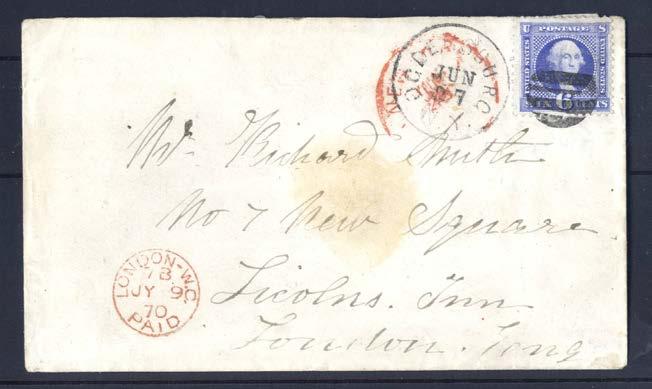 U POSTAGE S
UNITED STATES
SIX CENTS
OGDENSBURG
JUN
27
N.Y.
NEW
Mr Richard Smith
No 7 New Square
Licolns. Inn
London. Eng
LONDON-W.C
7B
JY 9
70
PAID